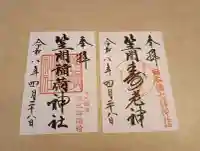 奉拝
笠間寿老神
令和八年四月二十八日
奉拝
笠間稲荷神社
令和八年四月二十八日